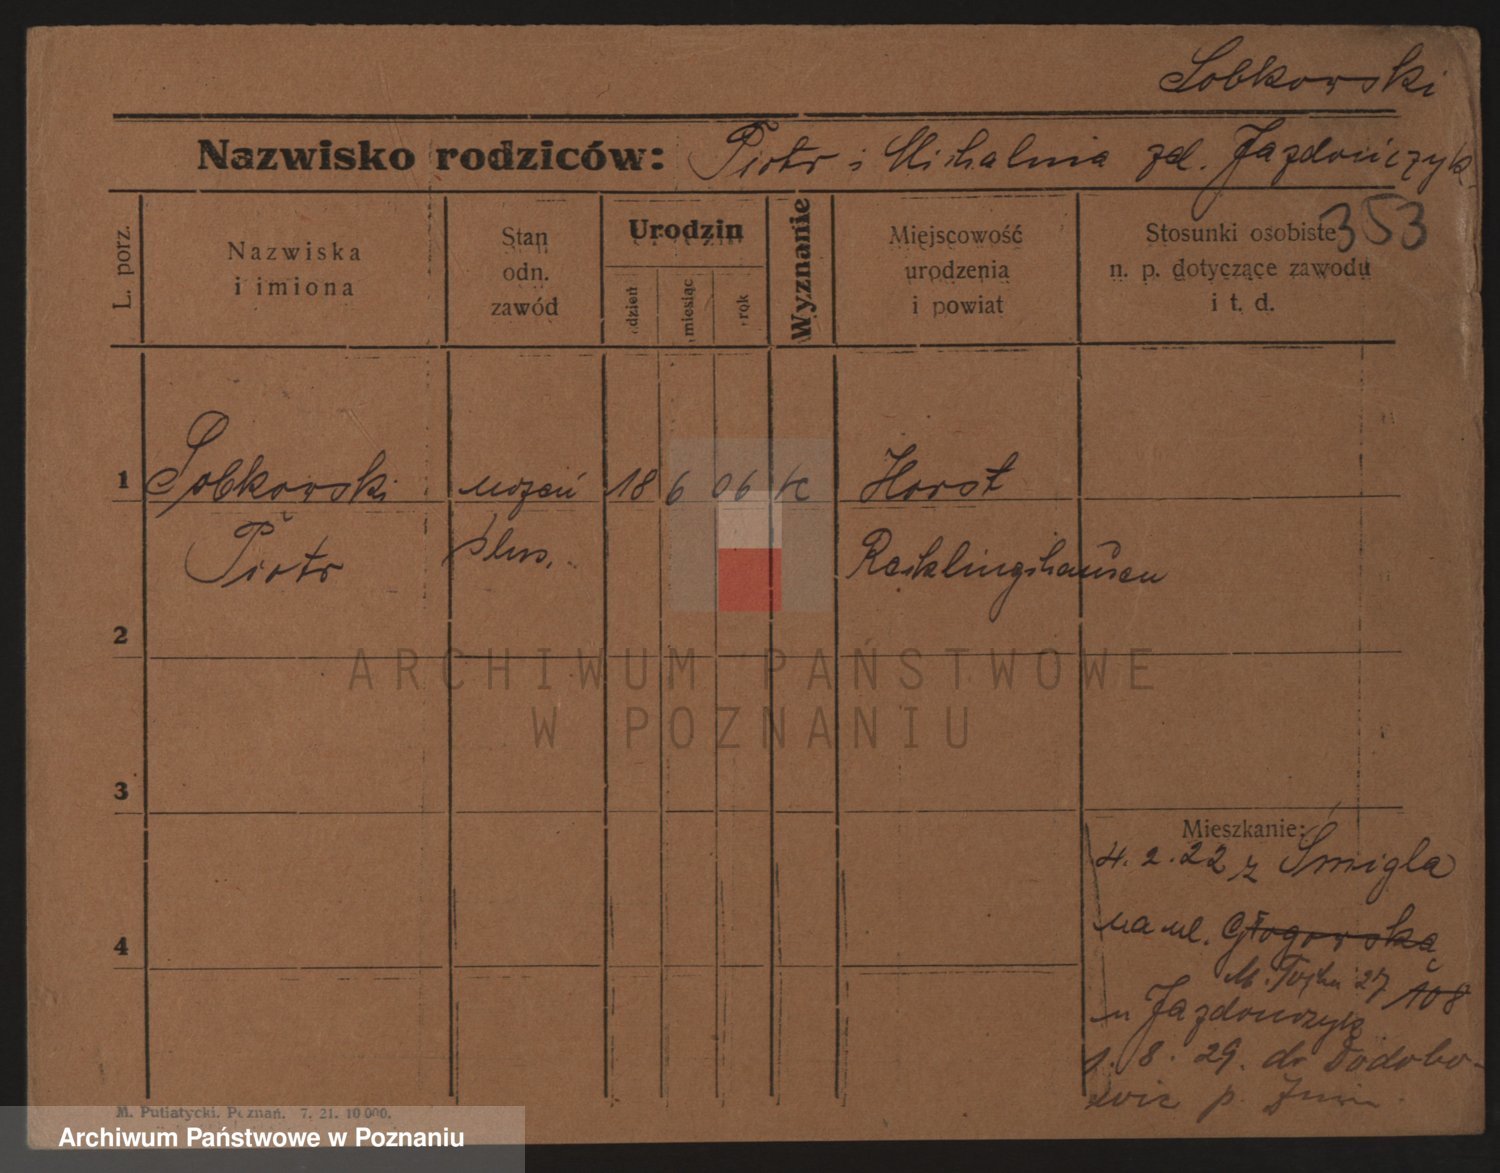 Sobkowski
Nazwisko rodziców: Piotr i Michalina zd. Jazdończyk
353
L. porz.
Nazwiska
i imiona
Stan
odn.
zawód
Urodzin
dzień
miesiąc
rok
Wyznanie
Miejscowość
urodzenia
i powiat
Stosunki osobiste
n. p. dotyczące zawodu
i t. d.
1 Sobkowski uczeń 18 6 06 k Horst
Piotr ślus. Recklinghausen
2
3
4
Mieszkanie:
4. 2. 22 z Śmigla
na ul. Głogowską
27 108
u Jazdończyka
1. 8. 29. do
p.
M. Putiatycki. Poznań. 7. 21. 10 000.
ARCHIWUM PAŃSTWOWE
W POZNANIU
Archiwum Państwowe w Poznaniu